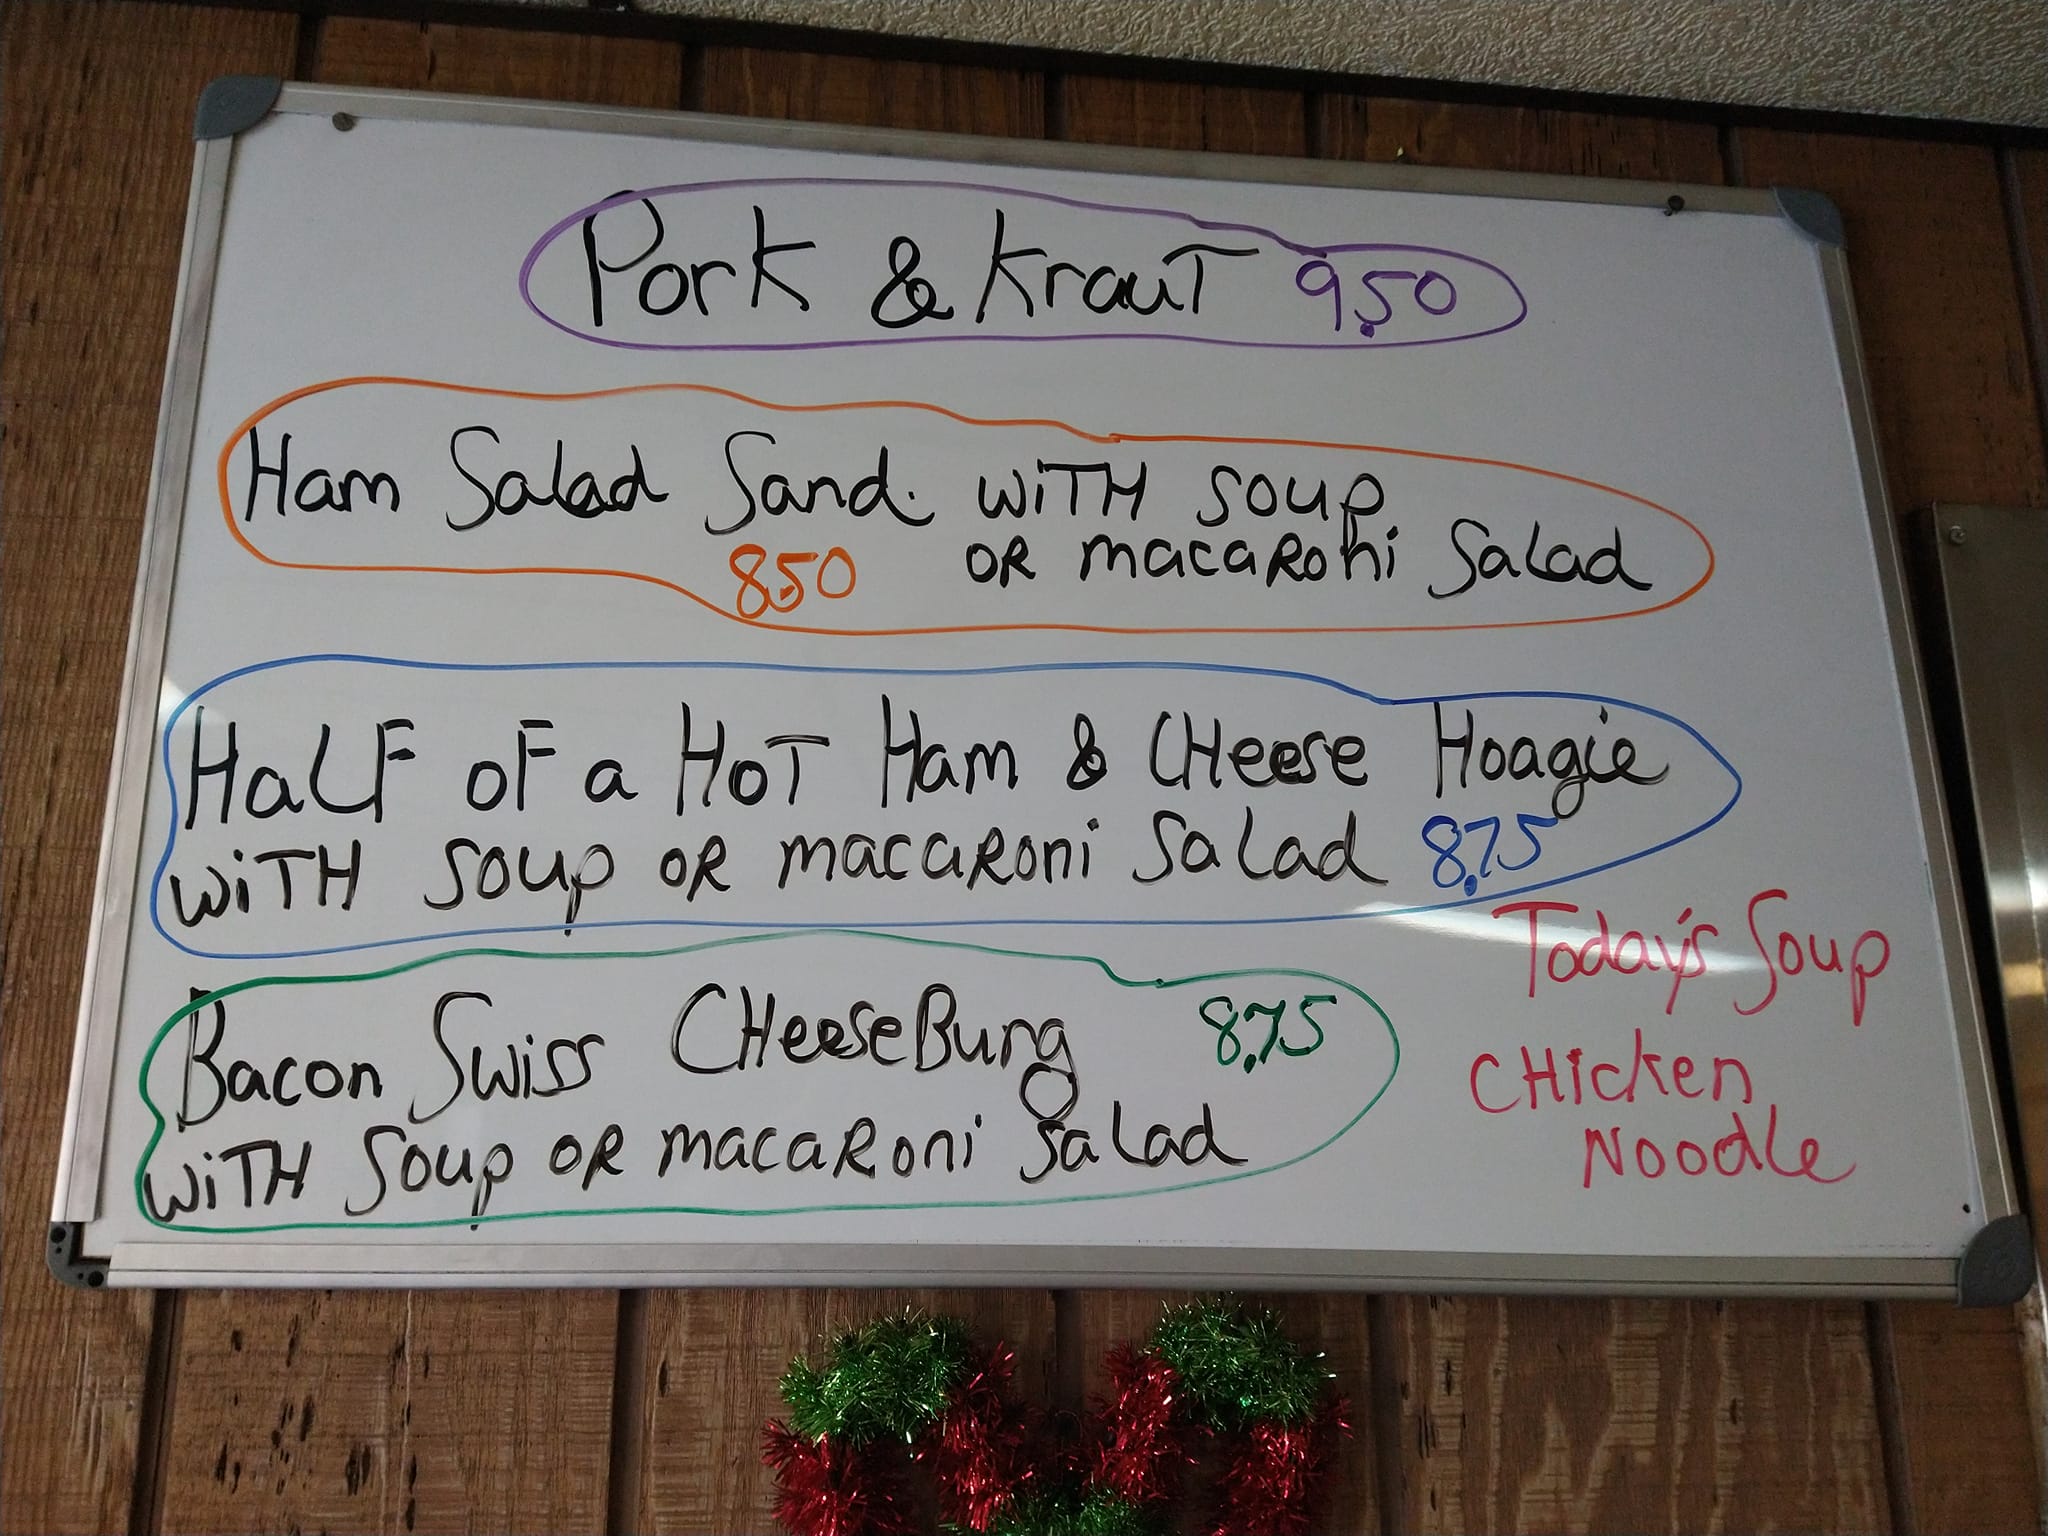 Pork & Kraut 9.50
Ham Salad Sand. with soup
or macaroni Salad
8.50
Half of a Hot Ham & Cheese Hoagie
with soup or macaroni Salad 8.75
Bacon Swiss CheeseBurg 8.75
with soup or macaroni Salad
Today's Soup
Chicken
Noodle